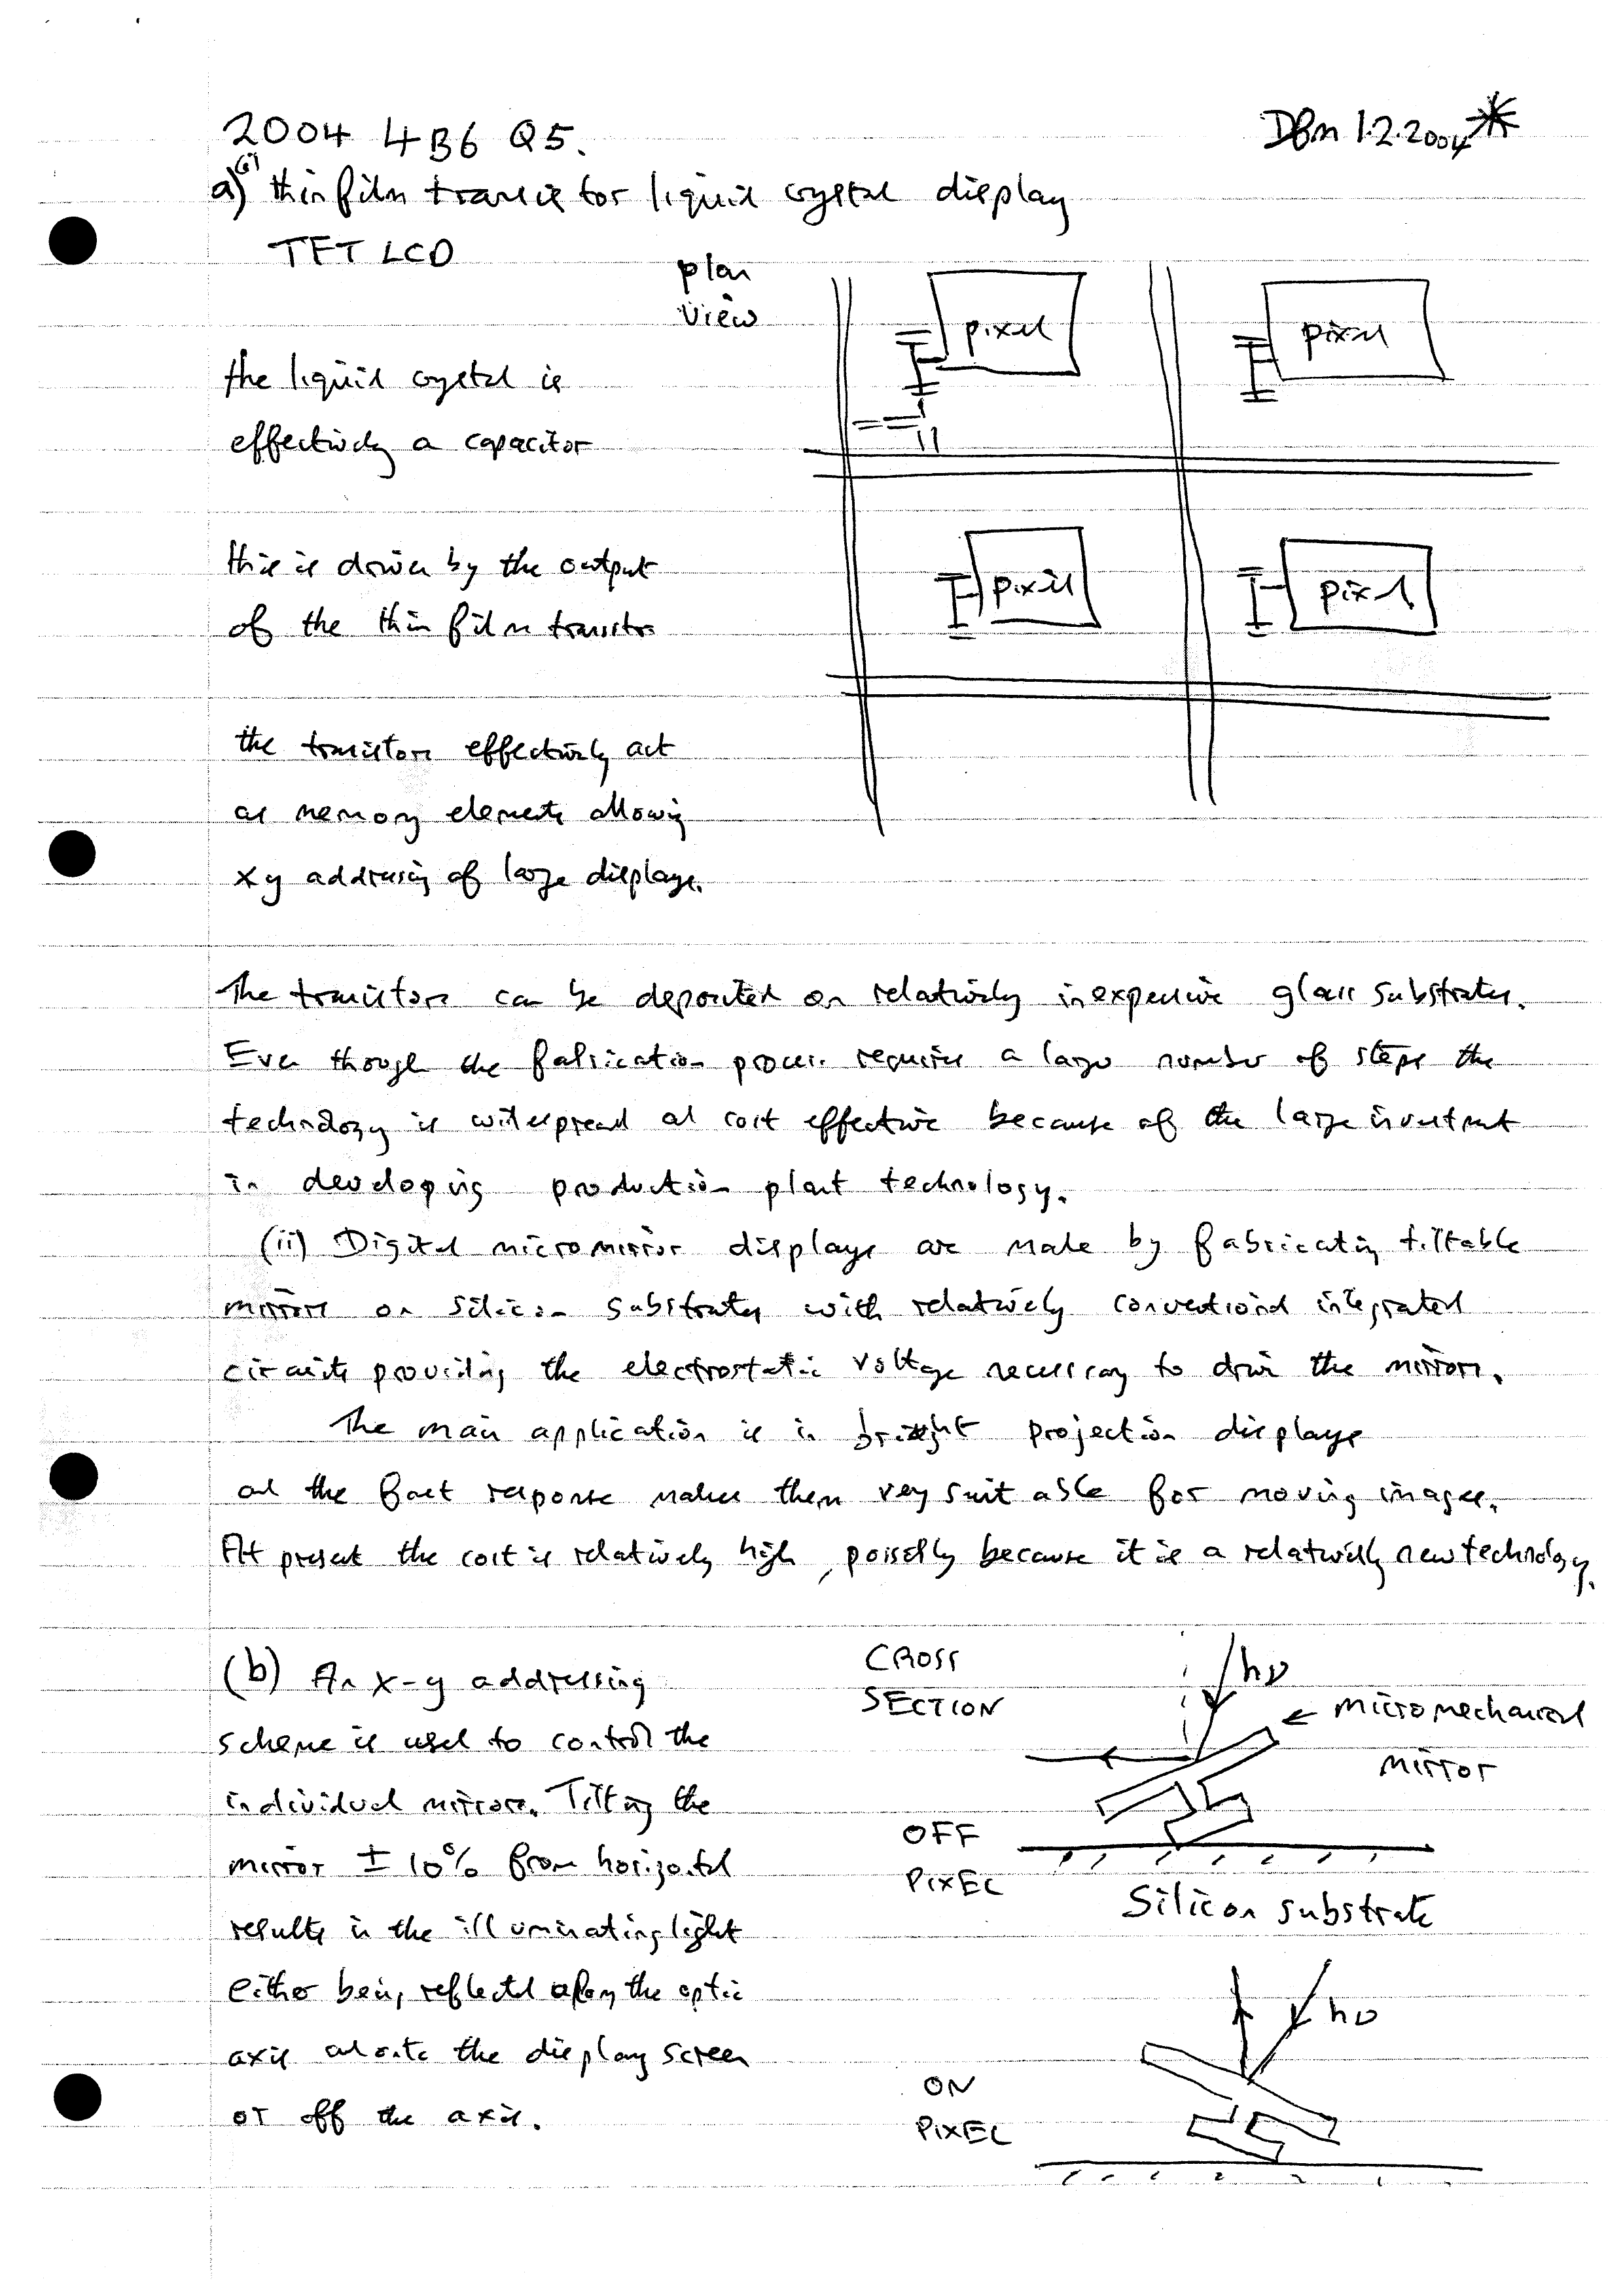 2004 4B6 Q5.
DBM 1.2.2004 *
a) (i) thin film transistor liquid crystal display
TFT LCD
plan
view
pixel
pixel
the liquid crystal is
effectively a capacitor
this is driven by the output
of the thin film transistor
pixel
pixel
the transistors effectively act
as memory elements allowing
xy addressing of large displays.
The transistors can be deposited on relatively inexpensive glass substrates.
Even though the fabrication process requires a large number of steps the
technology is widespread and cost effective because of the large investment
in developing production plant technology.
(ii) Digital micromirror displays are made by fabricating tiltable
mirrors on silicon substrates with relatively conventional integrated
circuits providing the electrostatic voltage necessary to drive the mirrors.
The main application is in bright projection displays
and the fast response makes them very suitable for moving images.
At present the cost is relatively high, possibly because it is a relatively new technology.
(b) An x-y addressing
scheme is used to control the
individual mirrors. Tilting the
mirror ± 10% from horizontal
results in the illuminating light
either being reflected along the optic
axis and onto the display screen
or off the axis.
CROSS
SECTION
hν
← micromechanical
mirror
OFF
PIXEL
Silicon substrate
hν
ON
PIXEL